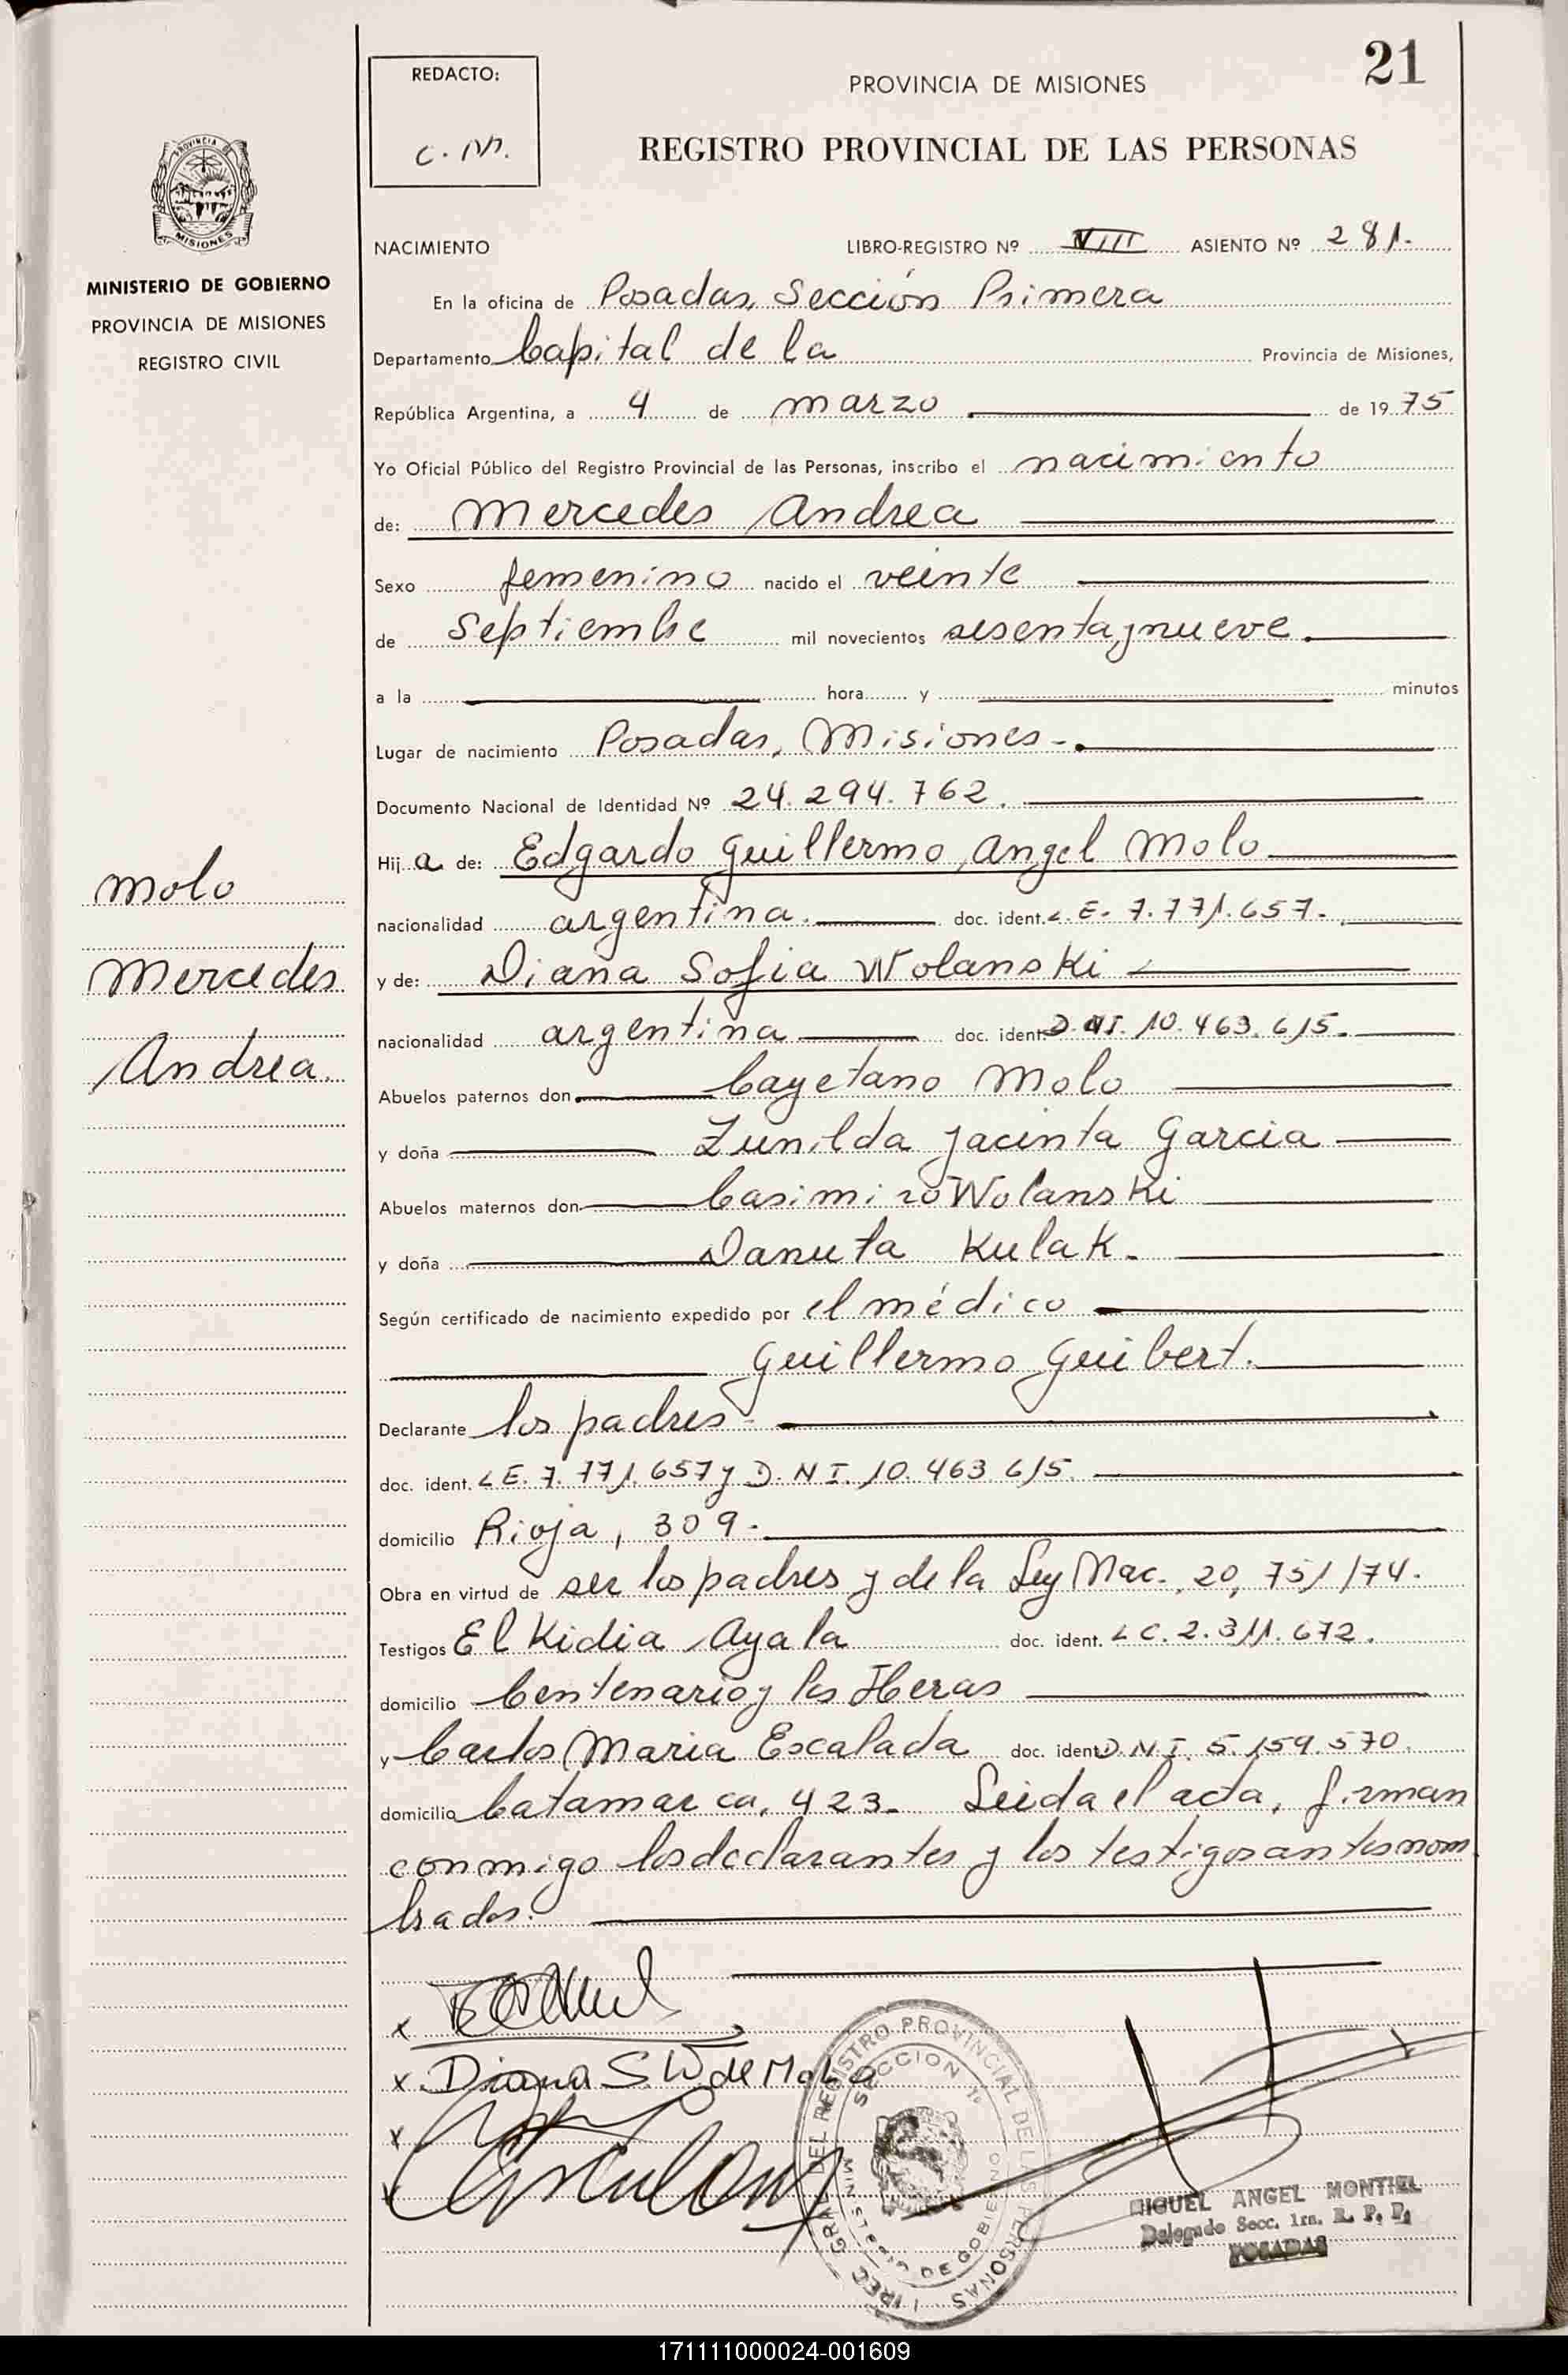 21
REDACTO:
C. M.
PROVINCIA DE MISIONES
REGISTRO PROVINCIAL DE LAS PERSONAS
PROVINCIA DE
MISIONES
MINISTERIO DE GOBIERNO
PROVINCIA DE MISIONES
REGISTRO CIVIL
NACIMIENTO LIBRO-REGISTRO Nº VIII ASIENTO Nº 281.
En la oficina de Posadas, Sección Primera
Departamento Capital de la Provincia de Misiones,
República Argentina, a 4 de marzo de 1975
Yo Oficial Público del Registro Provincial de las Personas, inscribo el nacimiento
de: Mercedes Andrea
Sexo femenino nacido el veinte
de Septiembre mil novecientos sesenta y nueve.
a la hora y minutos
Lugar de nacimiento Posadas, Misiones-.
Documento Nacional de Identidad Nº 24.294.762.
Hij a de: Edgardo Guillermo Angel Molo
nacionalidad argentina. doc. ident. L.E. 7.771.657.
y de: Diana Sofia Wolanski
nacionalidad argentina doc. ident. D.NI. 10.463.615.
Abuelos paternos don Cayetano Molo
y doña Zunilda Jacinta Garcia
Abuelos maternos don Casimiro Wolanski
y doña Danuta Kulak.
Según certificado de nacimiento expedido por el médico
Guillermo Guibert.
Declarante los padres-
doc. ident. L E. 7.771.657 y D.N I. 10.463.615.
domicilio Rioja, 309-
Obra en virtud de ser los padres y de la Ley Nac. 20,751/74.
Testigos El Kidia Ayala doc. ident. L C. 2.311.672.
domicilio Centenario y las Heras
y Carlos Maria Escalada doc. ident. D.N I. 5.159.570.
domicilio Catamarca, 423- Leida el acta, firman
conmigo los declarantes y los testigos antes nom
brados.
Molo
Mercedes
Andrea
x
x Diana S. W. de Molo
x
x
DIREC. GRAL. DEL REGISTRO PROVINCIAL DE LAS PERSONAS
SECCION 1ª
MINISTERIO DE GOBIERNO
MIGUEL ANGEL MONTIEL
Delegado Secc. 1ra. R. P. P.
POSADAS
171111000024-001609